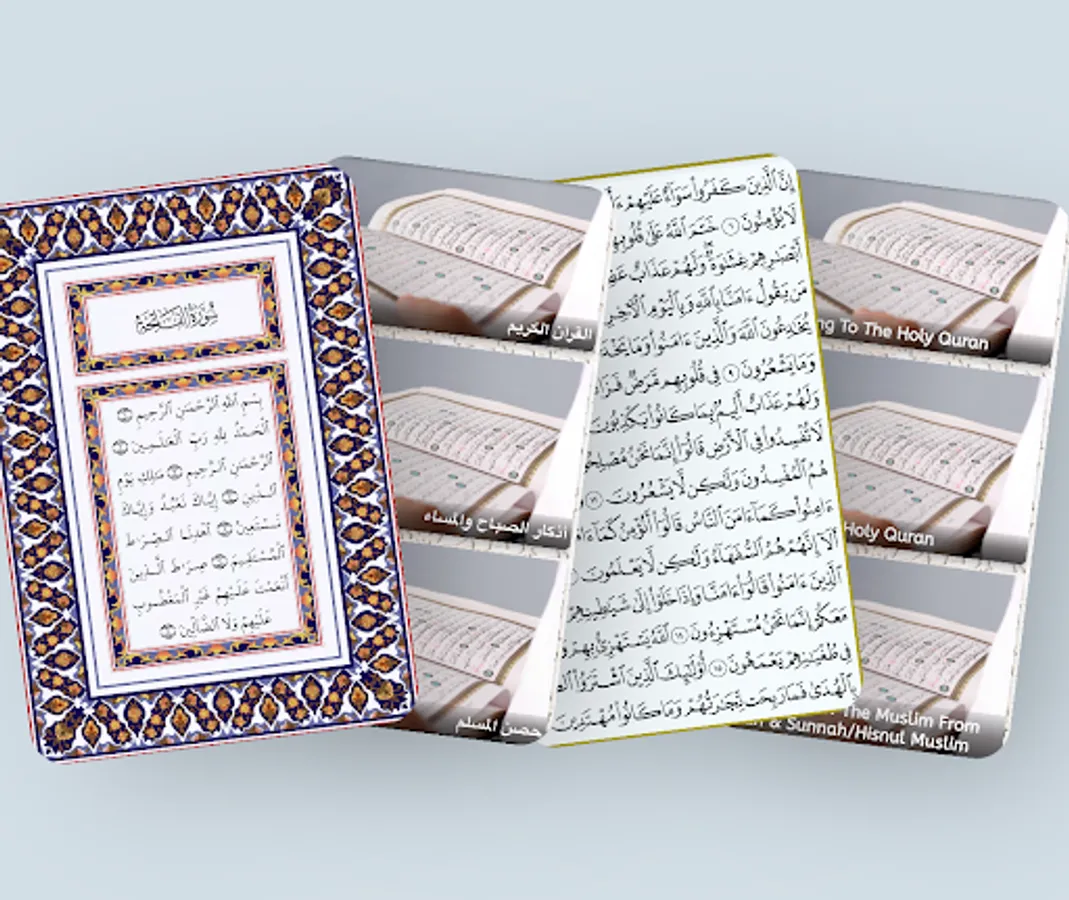 سُورَةُ الْفَاتِحَةِ
بِسْمِ اللَّهِ الرَّحْمَٰنِ الرَّحِيمِ ۝١
الْحَمْدُ لِلَّهِ رَبِّ الْعَالَمِينَ ۝٢
الرَّحْمَٰنِ الرَّحِيمِ ۝٣ مَالِكِ يَوْمِ
الدِّينِ ۝٤ إِيَّاكَ نَعْبُدُ وَإِيَّاكَ
نَسْتَعِينُ ۝٥ اهْدِنَا الصِّرَاطَ
الْمُسْتَقِيمَ ۝٦ صِرَاطَ الَّذِينَ
أَنْعَمْتَ عَلَيْهِمْ غَيْرِ الْمَغْضُوبِ
عَلَيْهِمْ وَلَا الضَّالِّينَ ۝٧
القرآن الكريم
أذكار الصباح والمساء
حصن المسلم
إِنَّ الَّذِينَ كَفَرُوا سَوَاءٌ عَلَيْهِمْ
لَا يُؤْمِنُونَ ۝٦ خَتَمَ اللَّهُ عَلَىٰ قُلُوبِهِ
أَبْصَارِهِمْ غِشَاوَةٌ وَلَهُمْ عَذَابٌ
مَن يَقُولُ آمَنَّا بِاللَّهِ وَبِالْيَوْمِ الْآخِرِ
يُخَادِعُونَ اللَّهَ وَالَّذِينَ آمَنُوا وَمَا
وَمَا يَشْعُرُونَ ۝٩ فِي قُلُوبِهِم مَّرَضٌ
وَلَهُمْ عَذَابٌ أَلِيمٌ بِمَا كَانُوا يَكْذِبُونَ
لَا تُفْسِدُوا فِي الْأَرْضِ قَالُوا إِنَّمَا نَحْنُ
هُمُ الْمُفْسِدُونَ وَلَٰكِن لَّا يَشْعُرُونَ
آمِنُوا كَمَا آمَنَ النَّاسُ قَالُوا أَنُؤْمِنُ كَمَا
أَلَا إِنَّهُمْ هُمُ السُّفَهَاءُ وَلَٰكِن لَّا يَعْلَمُونَ
الَّذِينَ آمَنُوا قَالُوا آمَنَّا وَإِذَا خَلَوْا إِلَىٰ شَيَاطِينِهِمْ
مَعَكُمْ إِنَّمَا نَحْنُ مُسْتَهْزِئُونَ ۝١٤ اللَّهُ يَسْتَهْزِئُ بِهِمْ
فِي طُغْيَانِهِمْ يَعْمَهُونَ ۝١٥ أُولَٰئِكَ الَّذِينَ اشْتَرَوُا
بِالْهُدَىٰ فَمَا رَبِحَت تِّجَارَتُهُمْ وَمَا كَانُوا مُهْتَدِينَ
ng To The Holy Quran
Holy Quran
The Muslim From
& Sunnah/Hisnul Muslim